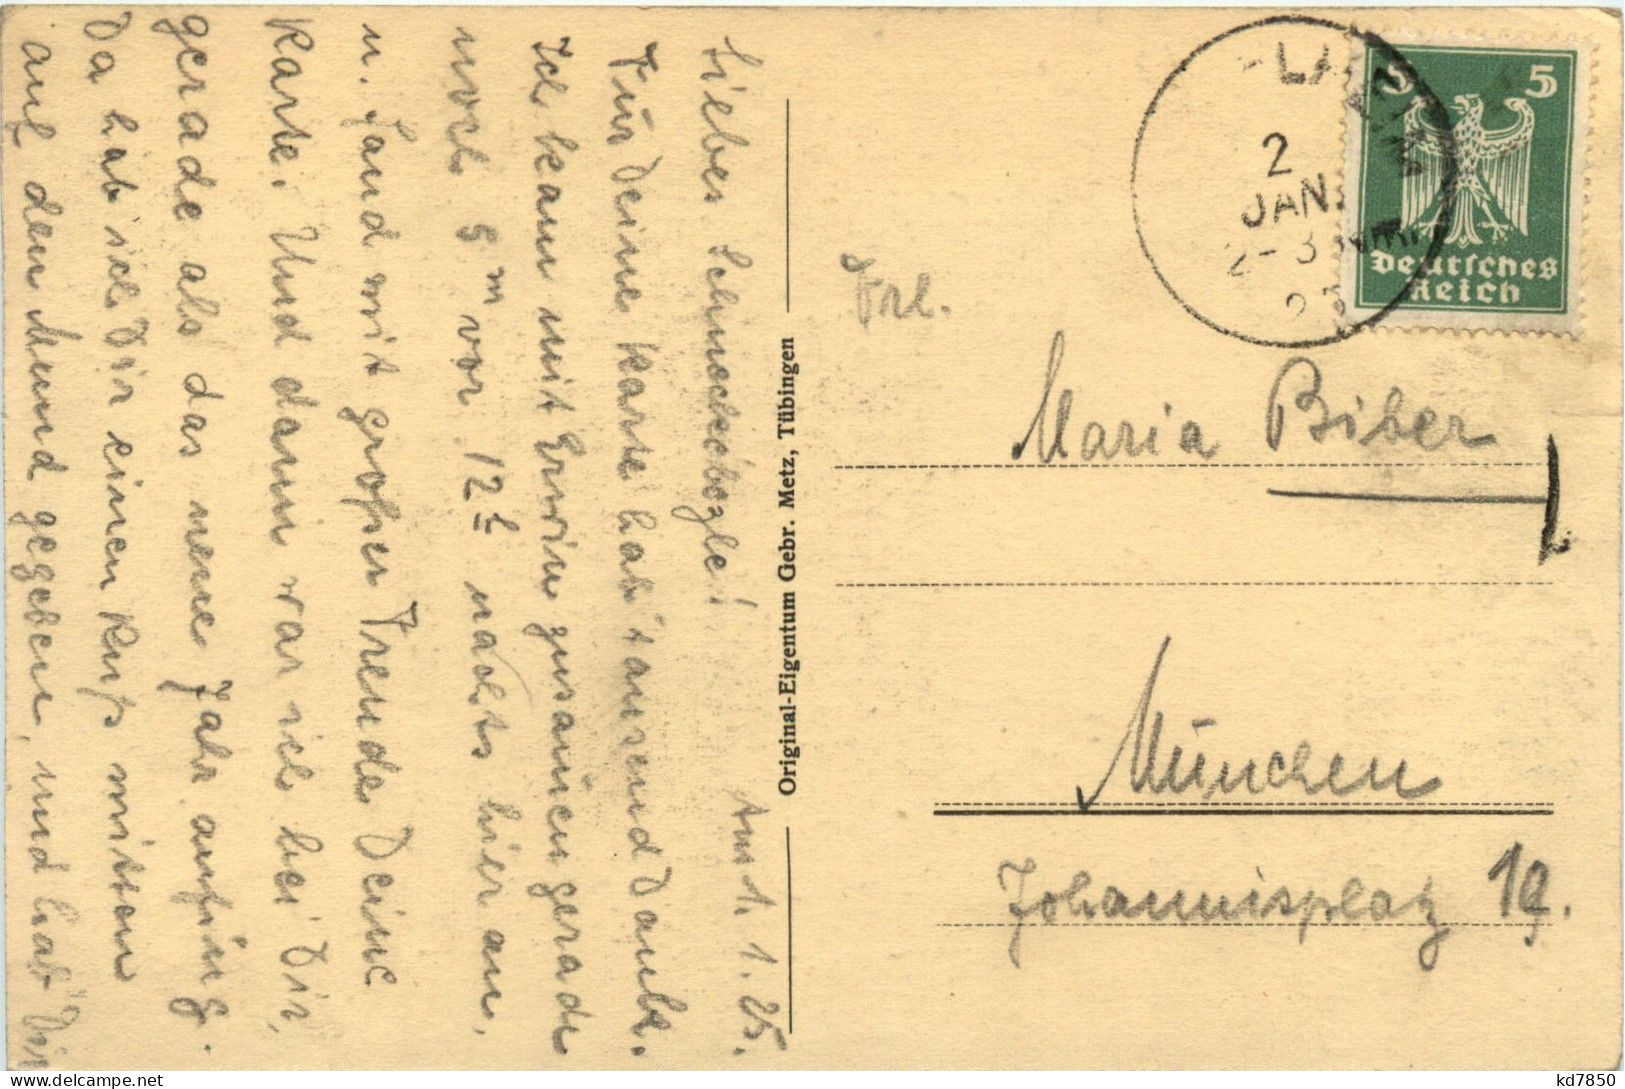 Liebes Schnockebozle!
Am 1. 1. 25.
Für Deine Karte hab' tausend Dank.
Ich kam mit Erwin zusamen gerade
noch 5 m vor 12 h nachts hier an,
u. fand mit großer Freude Deine
Karte. Und dann war ich bei Dir,
gerade als das neue Jahr anfing.
Da hab ich Dir einen Kuß mitten
auf den Mund gegeben, und hab Dir
Original-Eigentum Gebr. Metz, Tübingen
2
JAN.
2-3 Nm.
5 5
Deutsches
Reich
Frl.
Maria Biber
München
Johannisplatz 19.
kd7850